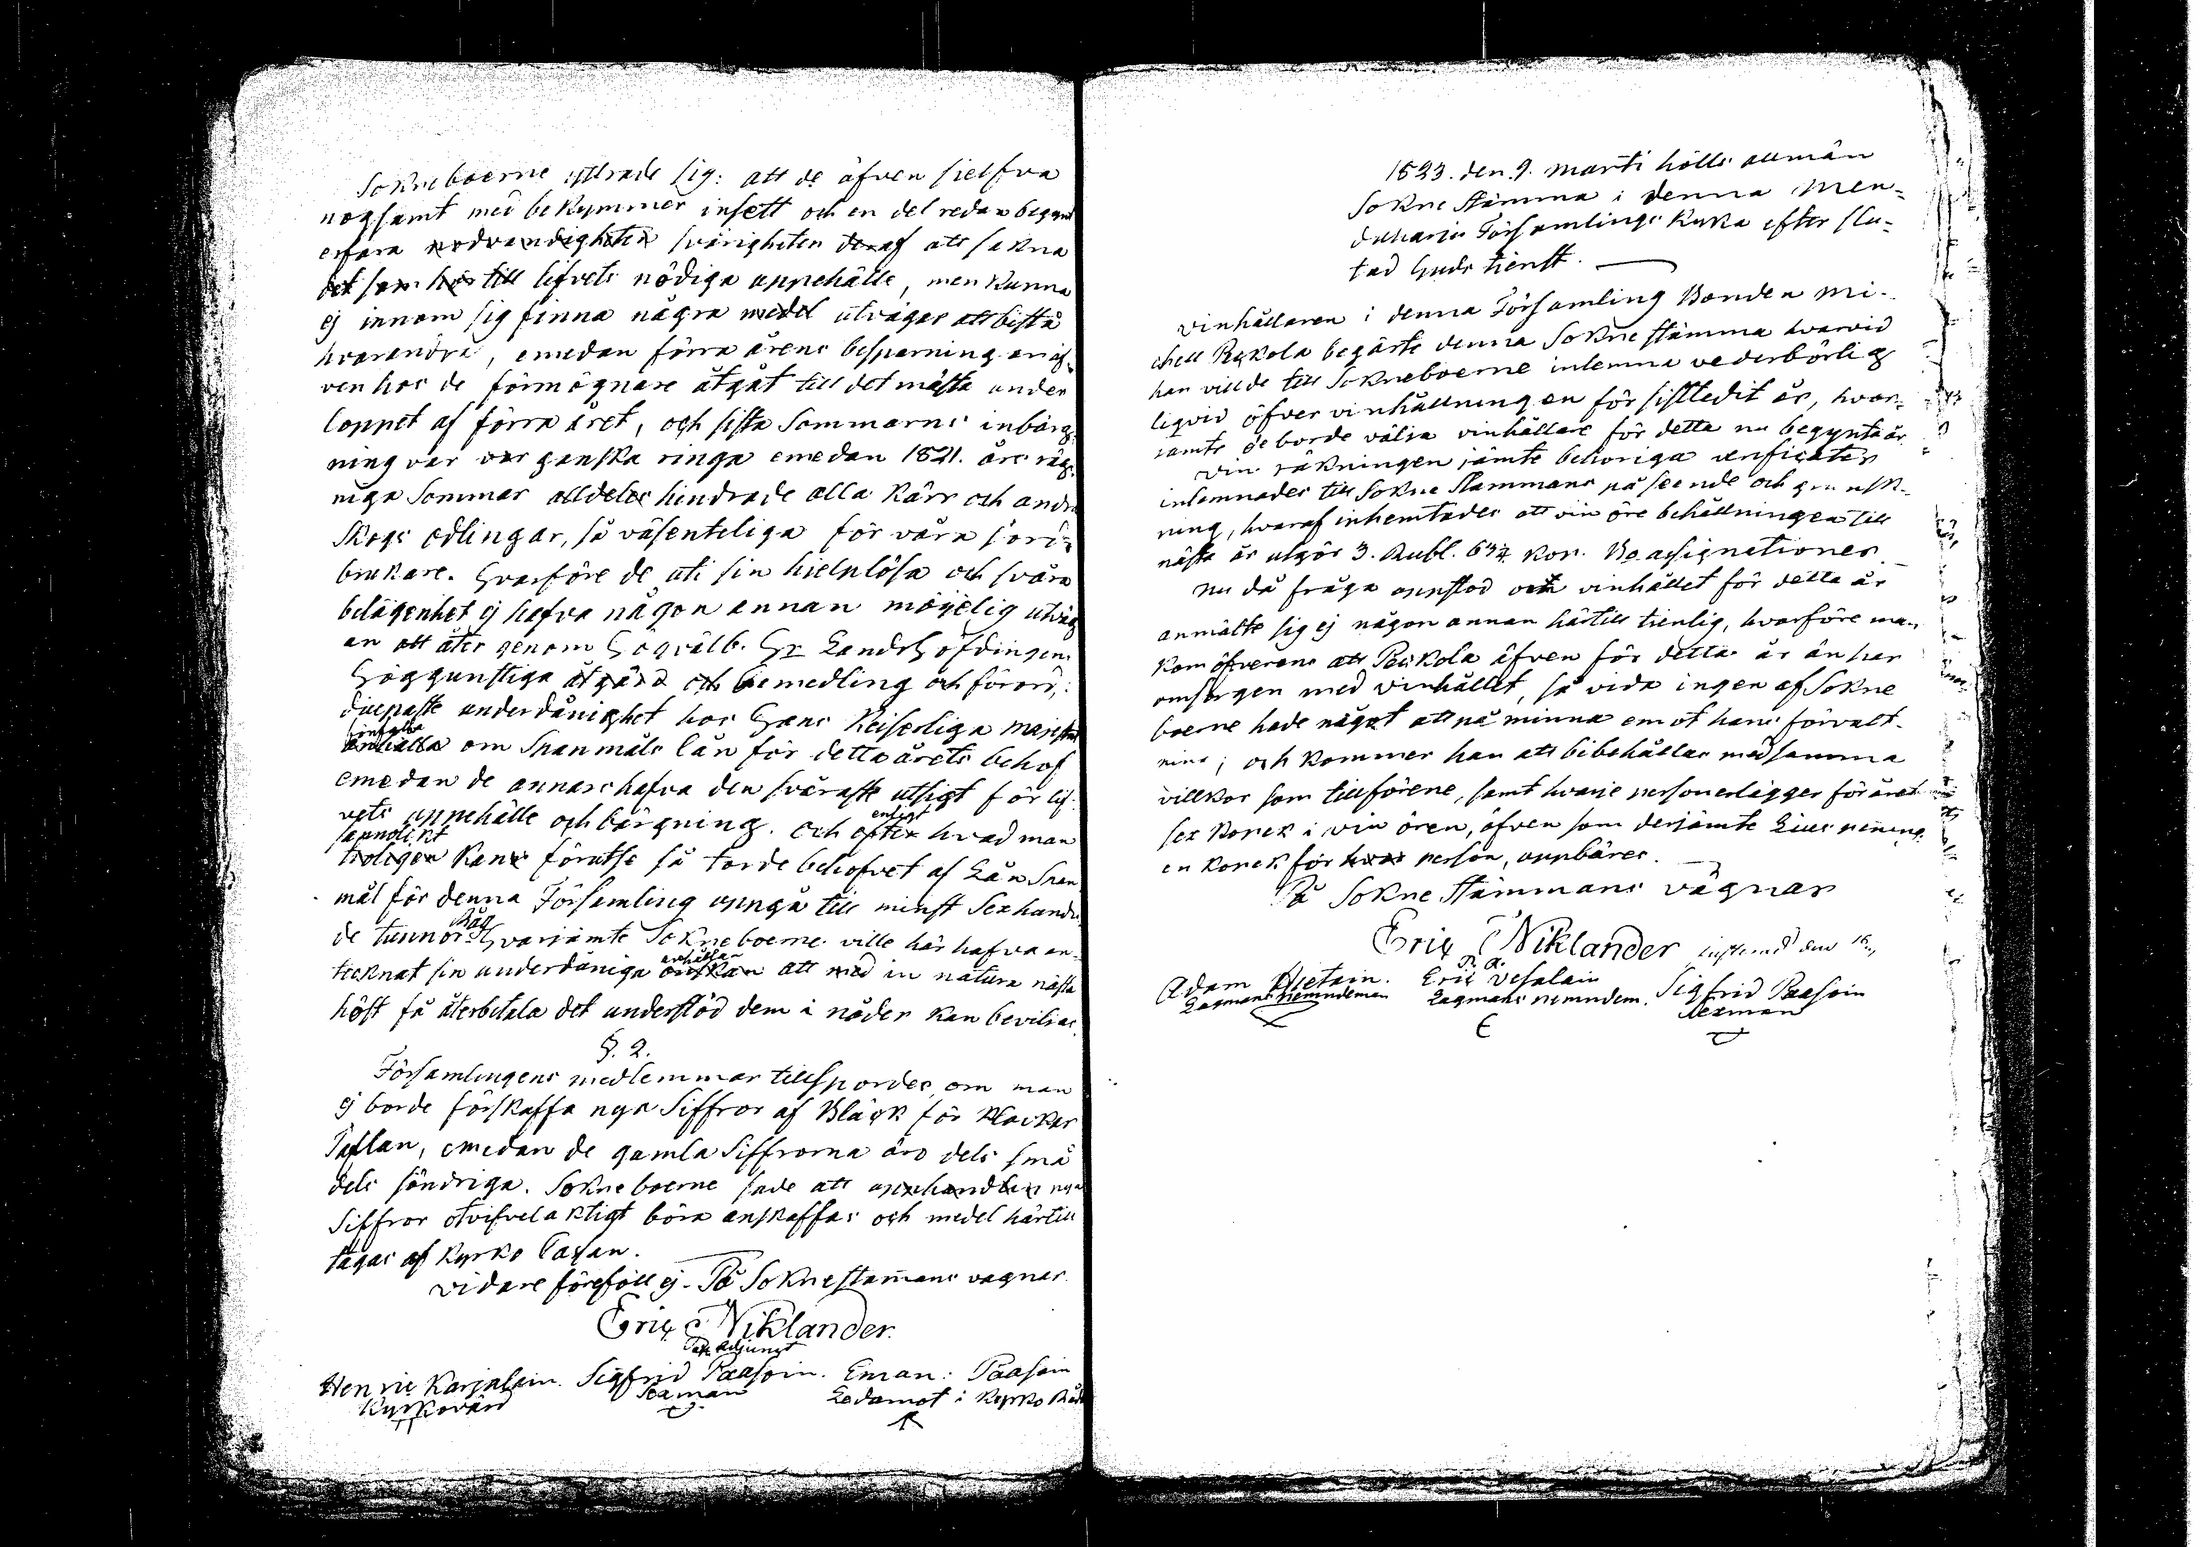 Sokneboerne yttrade sig: att de äfven sielfva
nogsamt med bekymmer insett och en del redan begynt
erfara nödvändigheten svårigheten deraf att sakna
det som hör till lifvets nödiga uppehälle, men kunna
ej innom sig finna några medel utvägar att bistå
hvarandra, emedan förra årens besparning är äf-
ven hos de förmögnare åtgåt till det mästa under
loppet af förra året, och sista Sommarns inbärg-
ning var var ganska ringa emedan 1821. års räg-
niga Sommar alldeles hindrade alla kärr och andra
skogs odlingar, så väsenteliga för våra jord-
brukare. Hvarföre de uti sin hielplösa och svåra
belägenhet ej hafva någon annan möjelig utväg
än att åter genom Högvälb. Hr Landshöfdingens
Höggunstiga åtgärd och bemedling och förord,
diupaste underdånighet hos Hans Keiserliga Majestät
bönfalla
anhålla om Spanmåls lån för detta årets behof
emedan de annars hafva den svåraste utsigt för lif-
vets uppehälle och bärgning. Och enligt efter hvad man
sannolikt
troligen kan förutse så torde behofvet af Lån Span
mål för denna Församling uppgå till minst Sexhundra
de tunnor Råg Hvarjämte Sokneboerne ville här hafva an-
tecknat sin underdåniga anhållan önskan att med in natura nästa
höst få återbetala det understöd dem i nåder kan beviljas.
§. 2.
Församlingens medlemmar tillspordes, om man
ej borde förskaffa nya Siffror af Bläck för klockar
Taflan, emedan de gamla Siffrorna äro dels små
dels söndriga. Sokneboerne sade att upphandlas nya
Siffror otvifvelaktigt böra anskaffas och medel härtill
tagas af Kyrko Cassan.
Vidare föreföll ej. På Soknestämans vägnar
Eric Niklander
Past. Adjunct
Henric Karjalain. Sigfrid Paasoin. Eman: Paasoin
Kyrkovärd Sexman Ledamot i Kyrko Råd
1823. den 9. Marti hölls allmän
Sokne Stämma i denna Men-
duharju Församlings Kyrka efter slu-
tad Guds tienst.
Vinhållaren i denna Församling Bonden Mi-
chell Puskola begärte denna Sokne stämma hvarvid
han villde till Sokneboerne inlemna vederbörlig
liqvid öfver vinhållningen för sistledit år, hvar-
jamte de borde välja vinhållare för detta nu begynta år
Vin räkningen jämte behöriga verificater
inlämnades till Sokne Stämmans påseende och gransk-
ning, hvaraf inhemtades att vin öre behållningen till
nästa år utgör 3. Rubl. 63¼ Kop. Bo assignationer.
Nu då fråga uppstod om vinhållet för detta år
anmälte sig ej någon annan härtill tienlig, hvarföre man
kom öfverens att Puskola äfven för detta år än har
omsorgen med vinhållet, så vida ingen af Sokne
boerne hade något att påminna emot hans förvalt-
ning; och kommer han att bibehållas med samma
villkor som tillförene, samt hvarje person erlägger för året
sex kopek i vin ören, äfven som derjämte Lius pening
en kopek för hvar person, uppbäres.
På Sokne Stämmans vägnar
Eric Niklander justerad den 16.
P. A.
Adam Hietain. Eric Vesalain Sigfrid Paasoin
Lagmans nemndeman Lagmans nemndem. Sexman